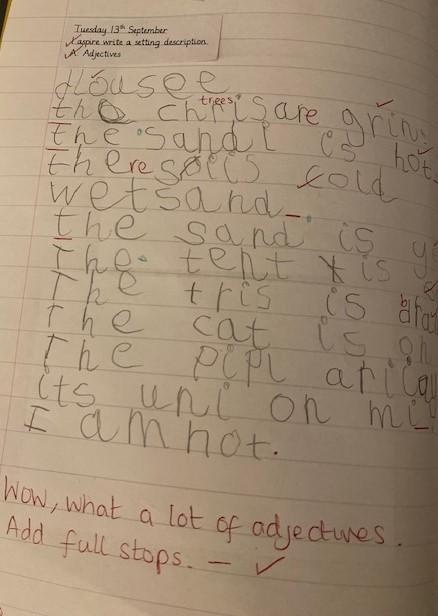 Tuesday 13th September
I aspire write a setting description.
A. Adjectives
trees
the chris are grin
the sand is hot.
there is cold
wet sand.
the sand is
The tent is
The tris is
The cat is on
The pipl
its uni on mi
I am hot.
Wow, what a lot of adjectives.
Add full stops. – ✓